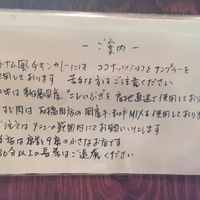 －ご案内－
トナム風チキンカリーには ココナッツミルクとナンプラーを
使用しております 苦手な方はご注意ください
米は新潟県産"こしいぶき"を産地直送で使用しており
肉は 国産牛 和牛MIXを使用して
ご注文はメニューの範囲内にてお願いいたします
当店は席数9席の小さなお店です
分以上の長居はご遠慮ください